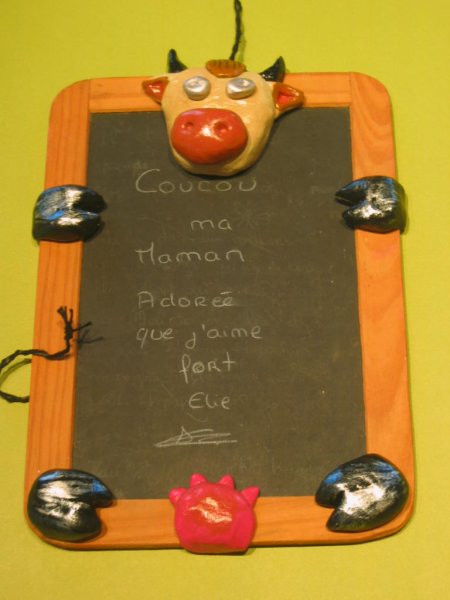 Coucou
ma
Maman
Adorée
que j'aime
fort
Elie